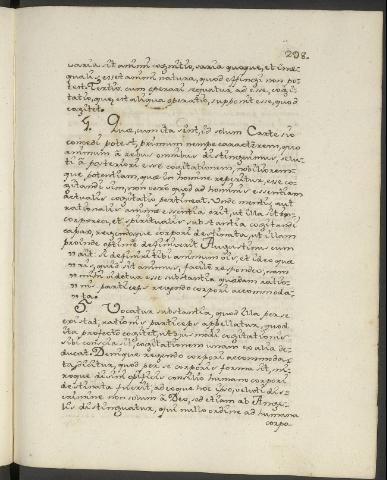 298.
varia sit animi cognitio, varia quoque, et inæ-
qualis esset animi natura, quod effingi non po-
test. Tertio. cum operari sequatur ad esse, cogi-
tatio, quæ est aliqua operatio, supponit esse, quod
cogitet.
4. Quæ, cum ita sint, id solum Cartesio
concedi potest, primum nempe caracterem, quo
animum a rebus omnibus distinguimus, selu-
ti a posteriori esse cogitationem, nobiliorem-
que potentiam, quæ in homine reperitur, esse co-
gitandi vim, non vero quod ad hominis essentiam
actualis cogitatio pertineat. Unde mentis, aut
rationalis animæ essentia erit, ut illa sit in-
corporea, et spiritualis substantia cogitandi
capax, regendoque corpori destinata, ut illam
proinde optime definiverit Augustinus cum
" ait: si definiri tibi animum vis, et ideo quæ-
" ris, quid sit animus, facile respondeo, nam
" mihi videtur esse substantia quædam ratio-
" nis particeps regendo corpori accommoda-
" ta.
5. Vocatur substantia, quod illa per se
existat, rationis particeps appellatur, quod
ita profecto cogitet, ut ipsimodi cogitationis
sibi conscia sit, cogitationem unam ex alia de-
ducat. Denique regendo corpori accommoda-
ta, dicitur, quod per se corporis forma sit, mi-
roque divini opificis consilio humano corpori
destinata fuerit, adeoque hoc ipso, veluti dis-
crimine non solum a Deo, sed etiam ab Ange-
lis distinguatur, qui nullo ordine ad humana
corpo-